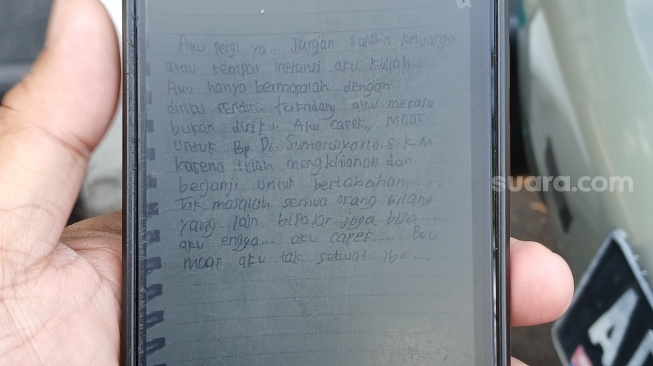 Aku pergi ya. Jangan salahin keluarga
atau tempat instansi aku kuliah....
Aku hanya bermasalah dengan
diriku sendiri terkadang aku merasa
bukan diriku. Aku capek, maaf
untuk Bp Dr. Sumardiyono. S.K.M
karena telah mengkhianati dan
berjanji untuk bertahan....
Tak masalah semua orang bilang
yang lain bipolar juga bisa....
aku engga... aku capek.... Buu
maaf aku tak sekuat ibu....
suara.com
A